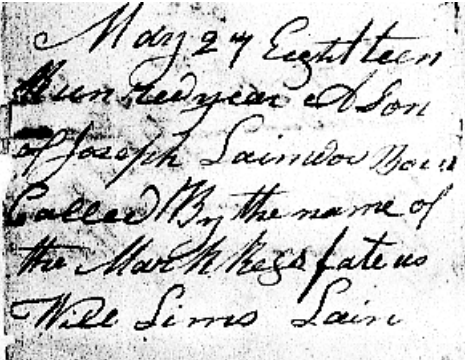 May 27 Eighteen
Hundred year A Son
of Joseph Lain was Born
Called By the name of
the Mark
Will Sims Lain